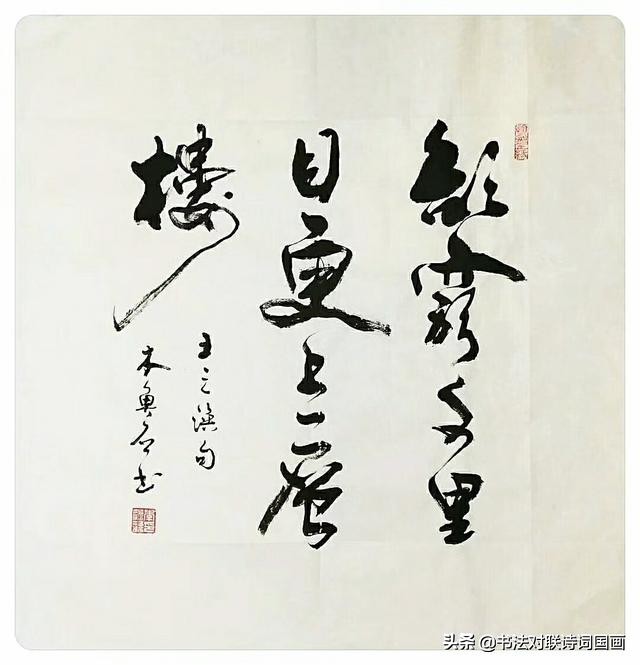 欲窮千里
目更上一層
樓
王之渙句
木魚石书
头条 @书法对联诗词国画